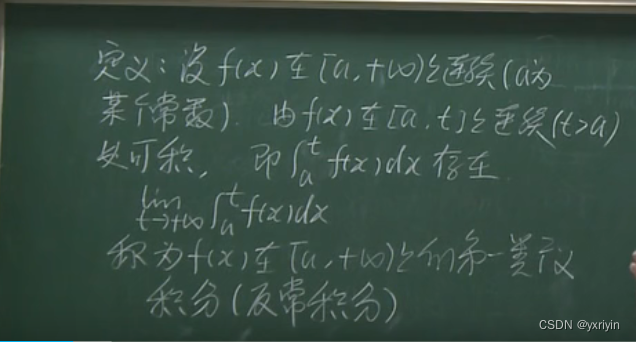 定义：设f(x)在[a,+∞)上连续(a为
某个常数). 由f(x)在[a,t]上连续(t>a)
处可积, 即∫ₐᵗ f(x)dx存在
lim t→+∞ ∫ₐᵗ f(x)dx
称为f(x)在[a,+∞)上的第一类广义
积分(反常积分)
CSDN @yxriyin